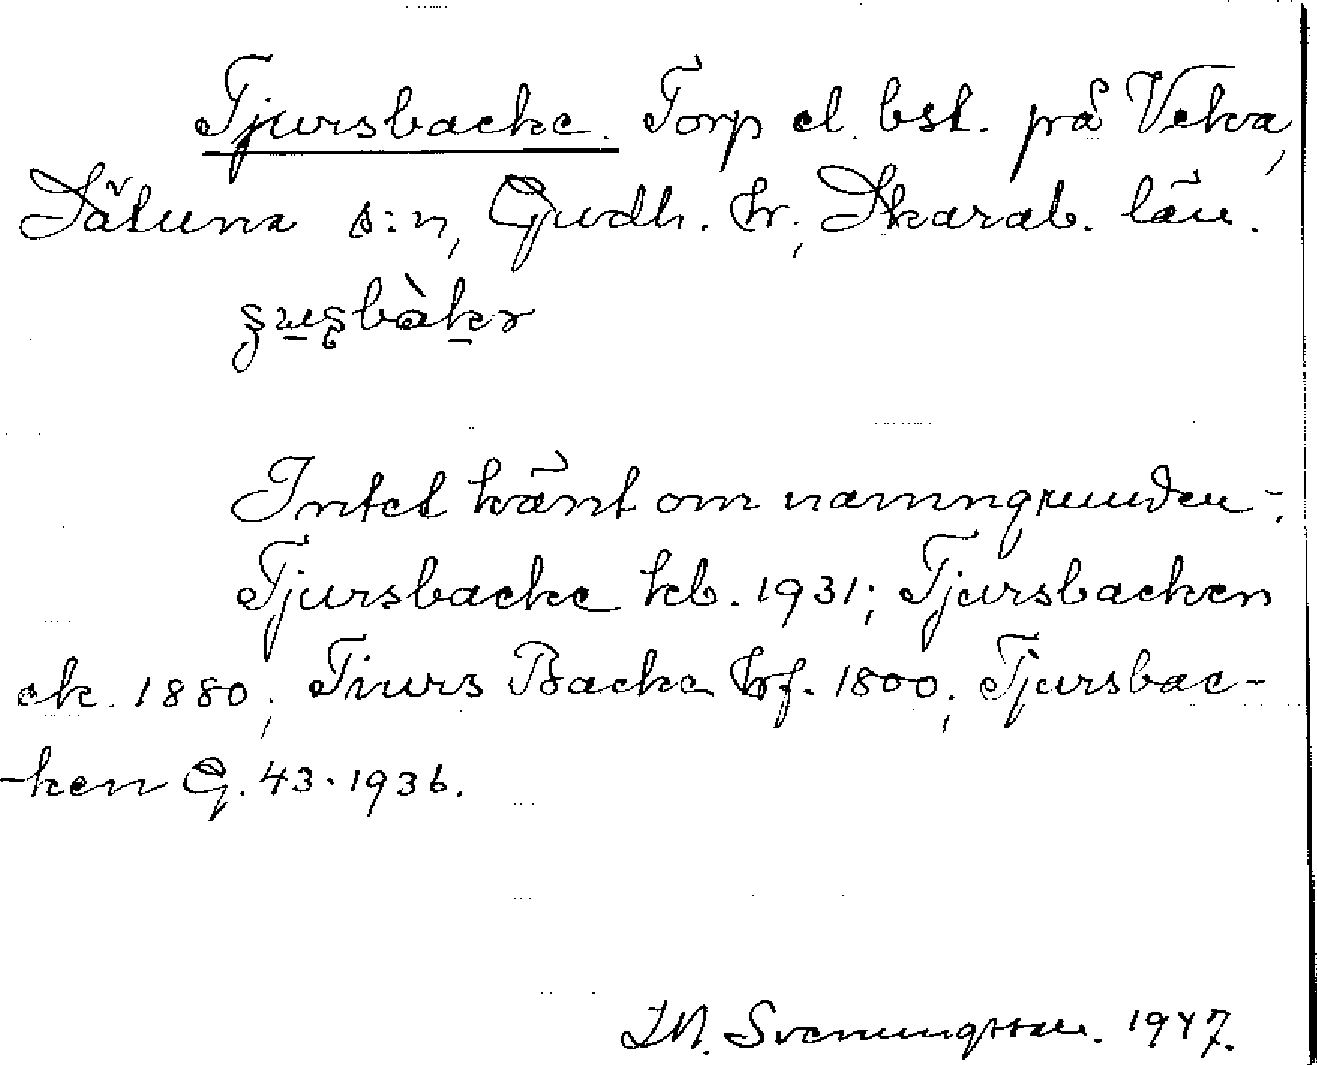 Tjursbacke. Torp el. bst. på Vekva,
Sätuna s:n, Gudh. hr., Skarab. län.
Intet känt om namngrunden.
Tjursbacke kb. 1931; Tjursbacken
ek. 1880; Tiurs Backe hrf. 1800; Tjursbac-
-ken G. 43. 1936.
Svenungsson. 1947.